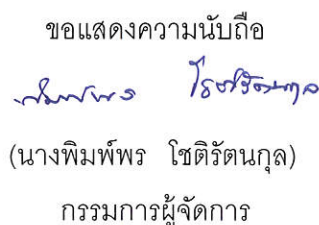 ขอแสดงความนับถือ
พิมพ์พร โชติรัตนกุล
(นางพิมพ์พร โชติรัตนกุล)
กรรมการผู้จัดการ